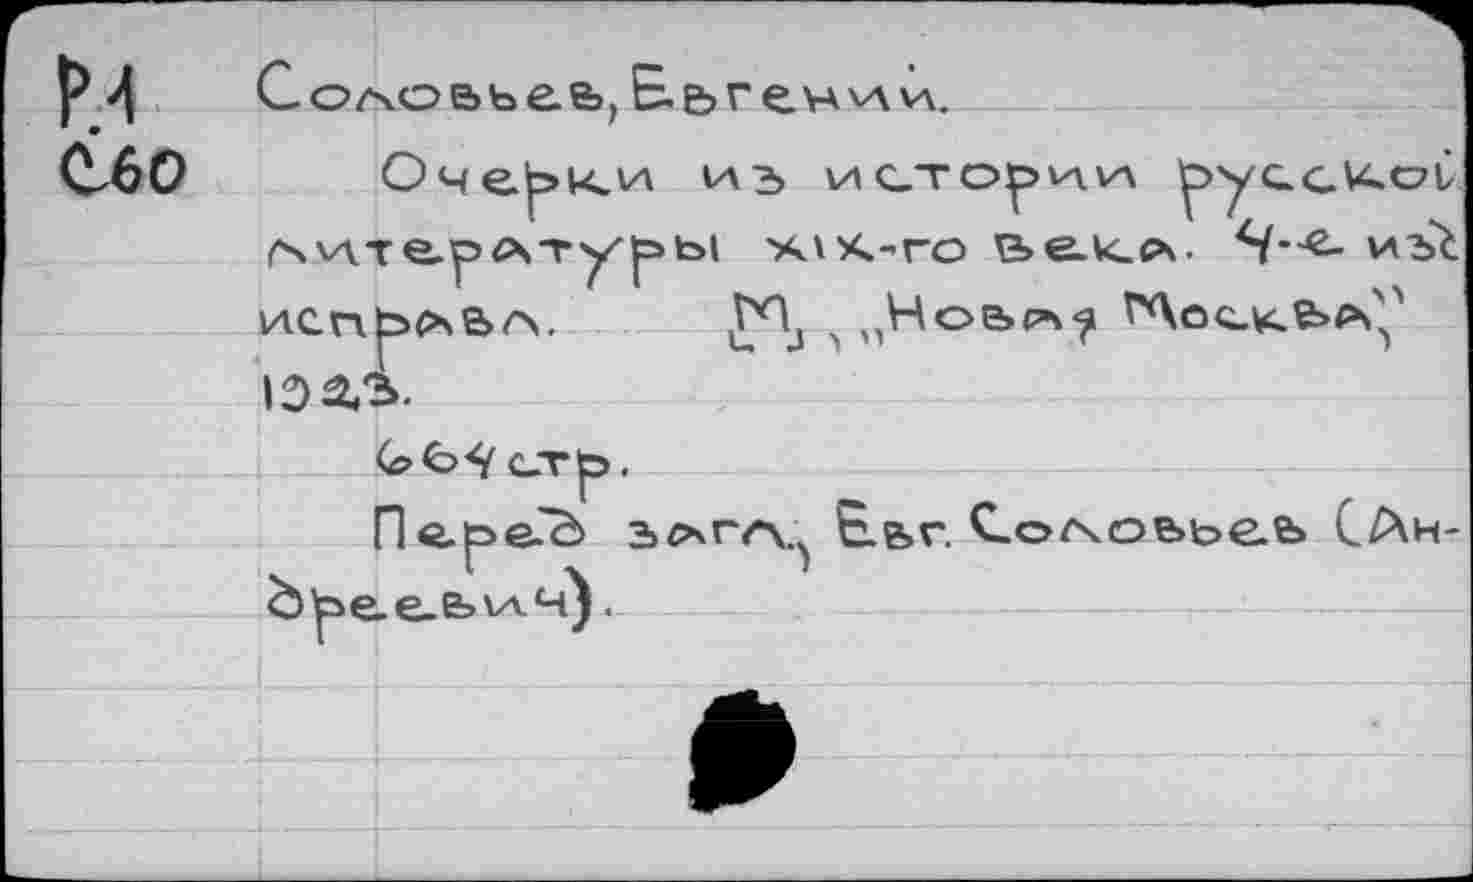 Р.4 Соловьев, Евгений.
С60 Очерки из истории русской
литературы XIX-го века. 4-е изд
исправл. [М], „Новая Москва",
1923.
664 стр.
Перед загл., Евг. Соловьев (Ан-
дреевич).